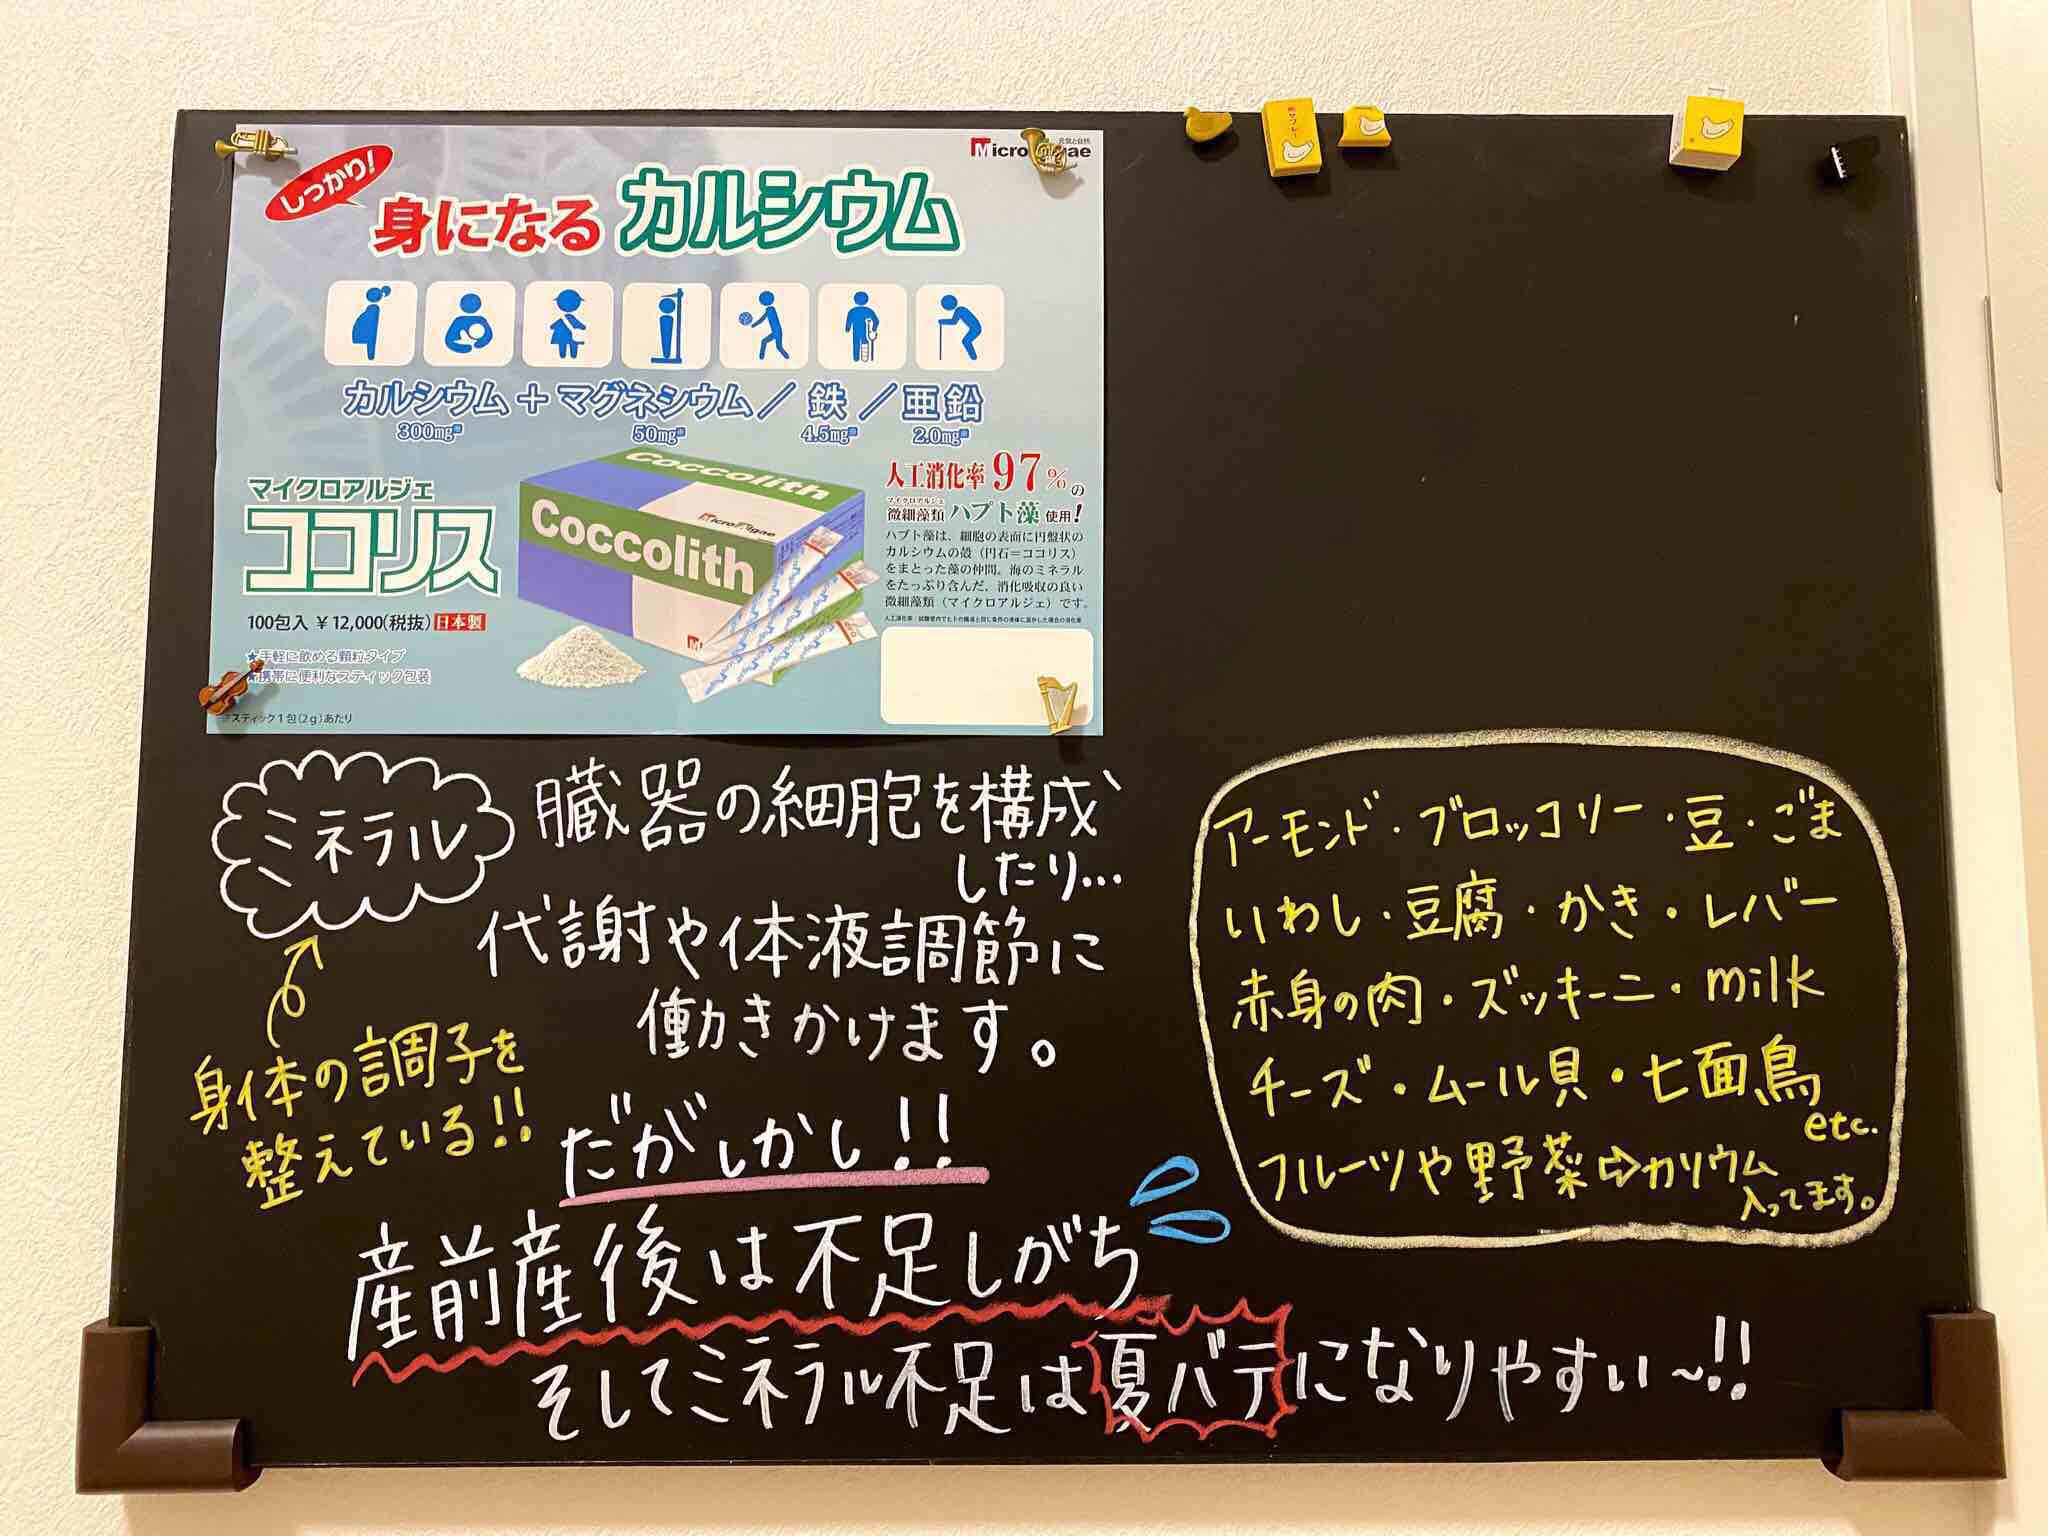 しっかり!
身になる カルシウム
カルシウム + マグネシウム / 鉄 / 亜鉛
300mg※ 50mg※ 4.5mg※ 2.0mg※
マイクロアルジェ
ココリス
100包入 ¥12,000(税抜) 日本製
★手軽に飲める顆粒タイプ
★携帯に便利なスティック包装
※スティック1包(2g)あたり
Coccolith
Coccolith
人工消化率 97%の
マイクロアルジェ
微細藻類 ハプト藻 使用!
ハプト藻は、細胞の表面に円盤状の
カルシウムの殻(円石=ココリス)
をまとった藻の仲間。海のミネラル
をたっぷり含んだ、消化吸収の良い
微細藻類(マイクロアルジェ)です。
ミネラル
臓器の細胞を構成
したり…
代謝や体液調節に
働きかけます。
身体の調子を
整えている!!
だがしかし!!
産前産後は不足しがち
そしてミネラル不足は夏バテになりやすい〜!!
アーモンド・ブロッコリー・豆・ごま
いわし・豆腐・かき・レバー
赤身の肉・ズッキーニ・milk
チーズ・ムール貝・七面鳥
etc.
フルーツや野菜⇨カリウム
入ってます。